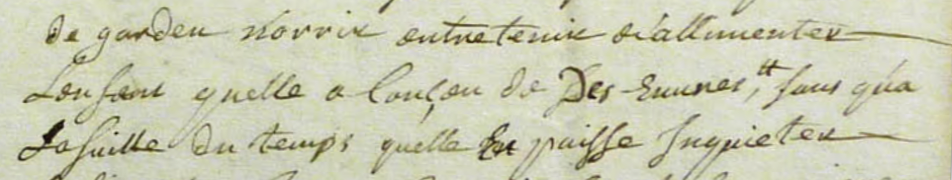 de garder norrir entretenir & allimenter
Lenfant quelle a conçeu de Des Euures, sans qua
Lasuitte du temps quelle En puisse Inquieter